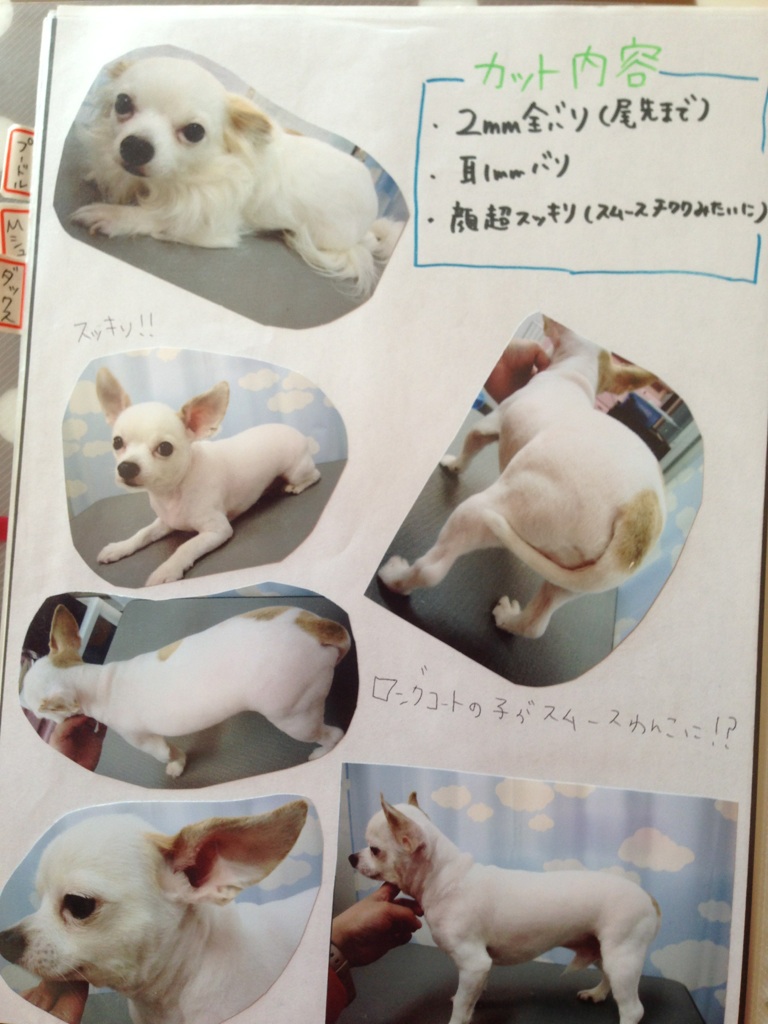 カット内容
・2mm全バリ(尾先まで)
・耳1mmバリ
・顔超スッキリ(スムースチワワみたいに)
プードル
Mシュ
ダックス
スッキリ!!
ロングコートの子がスムースわんこに!?